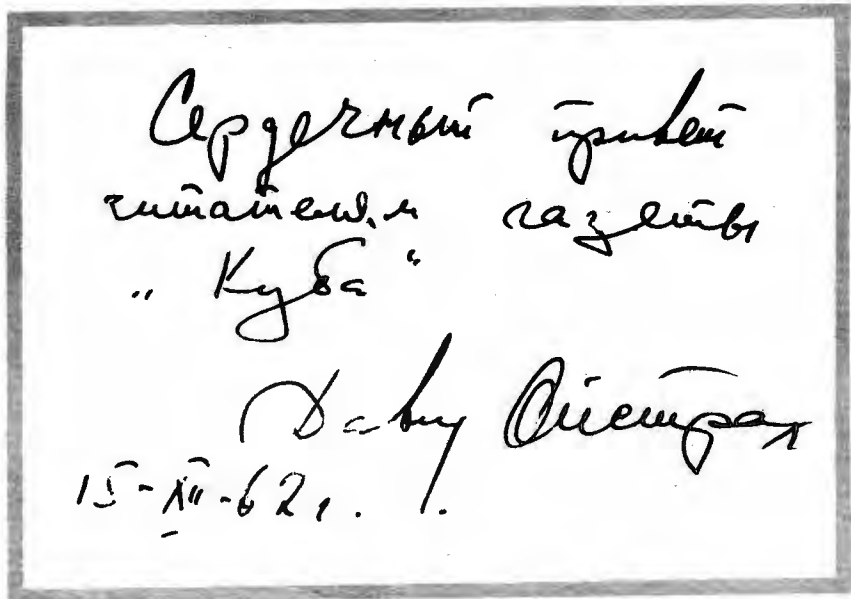 Сердечный привет
читателям газеты
„Куба“
Давид Ойстрах
15-XII-62 г.